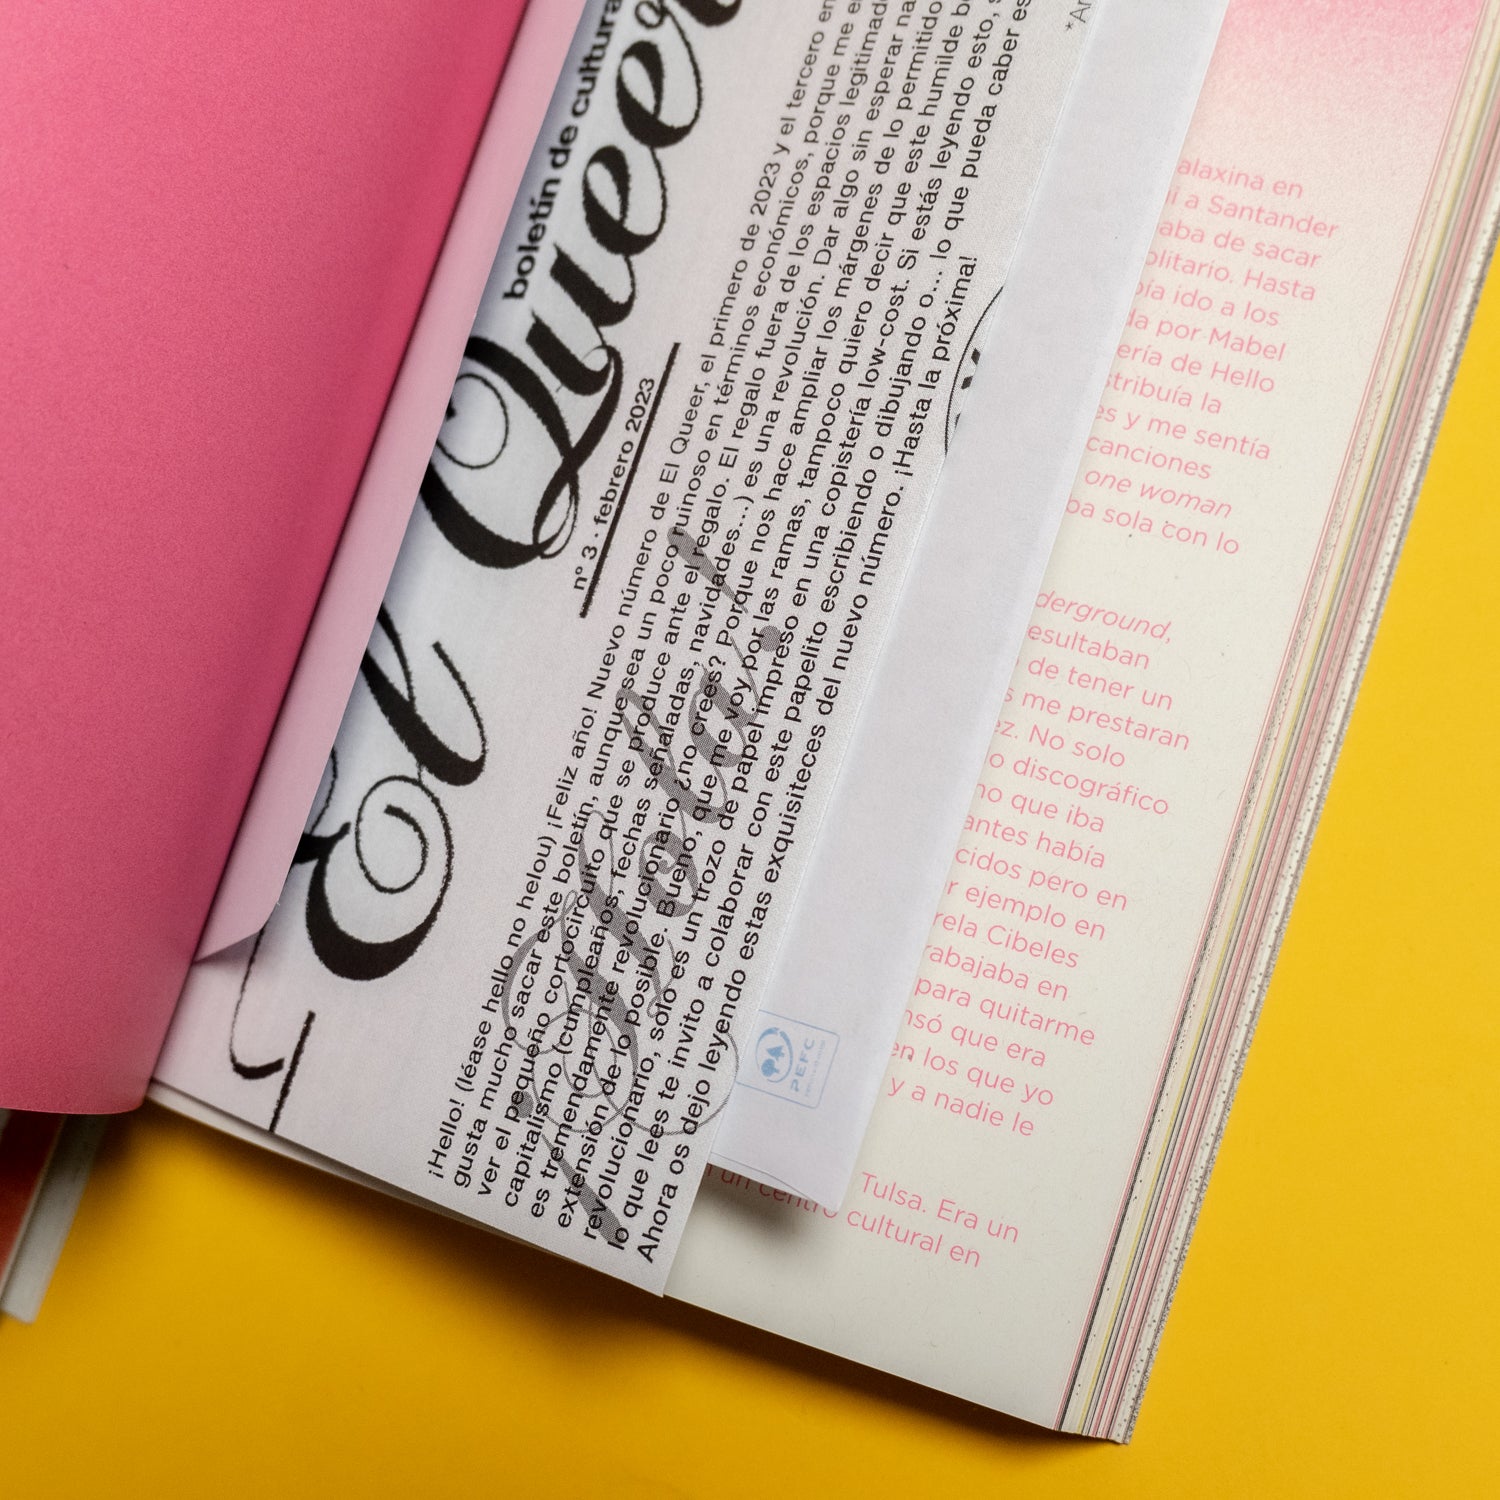 boletín de cultura
El Queer
nº 3 · febrero 2023
¡Hola!
¡Hello! (léase hello no helou) ¡Feliz año! Nuevo número de El Queer, el primero de 2023 y el tercero en
gusta mucho sacar este boletín, aunque sea un poco ruinoso en términos económicos, porque me e
ver el pequeño cortocircuito que se produce ante el regalo. El regalo fuera de los espacios legitimad
capitalismo (cumpleaños, fechas señaladas, navidades...) es una revolución. Dar algo sin esperar na
es tremendamente revolucionario ¿no crees? Porque nos hace ampliar los márgenes de lo permitido
extensión de lo posible. Bueno, que me voy por las ramas, tampoco quiero decir que este humilde b
revolucionario, solo es un trozo de papel impreso en una copistería low-cost. Si estás leyendo esto, s
lo que lees te invito a colaborar con este papelito escribiendo o dibujando o... lo que pueda caber es
Ahora os dejo leyendo estas exquisiteces del nuevo número. ¡Hasta la próxima!
*Ar
PEFC
alaxina en
i a Santander
aba de sacar
olitario. Hasta
ía ido a los
da por Mabel
ería de Hello
stribuía la
es y me sentía
canciones
one woman
ba sola con lo
derground,
esultaban
de tener un
s me prestaran
ez. No solo
o discográfico
no que iba
antes había
cidos pero en
r ejemplo en
rela Cibeles
rabajaba en
para quitarme
nsó que era
en los que yo
y a nadie le
Tulsa. Era un
un centro cultural en